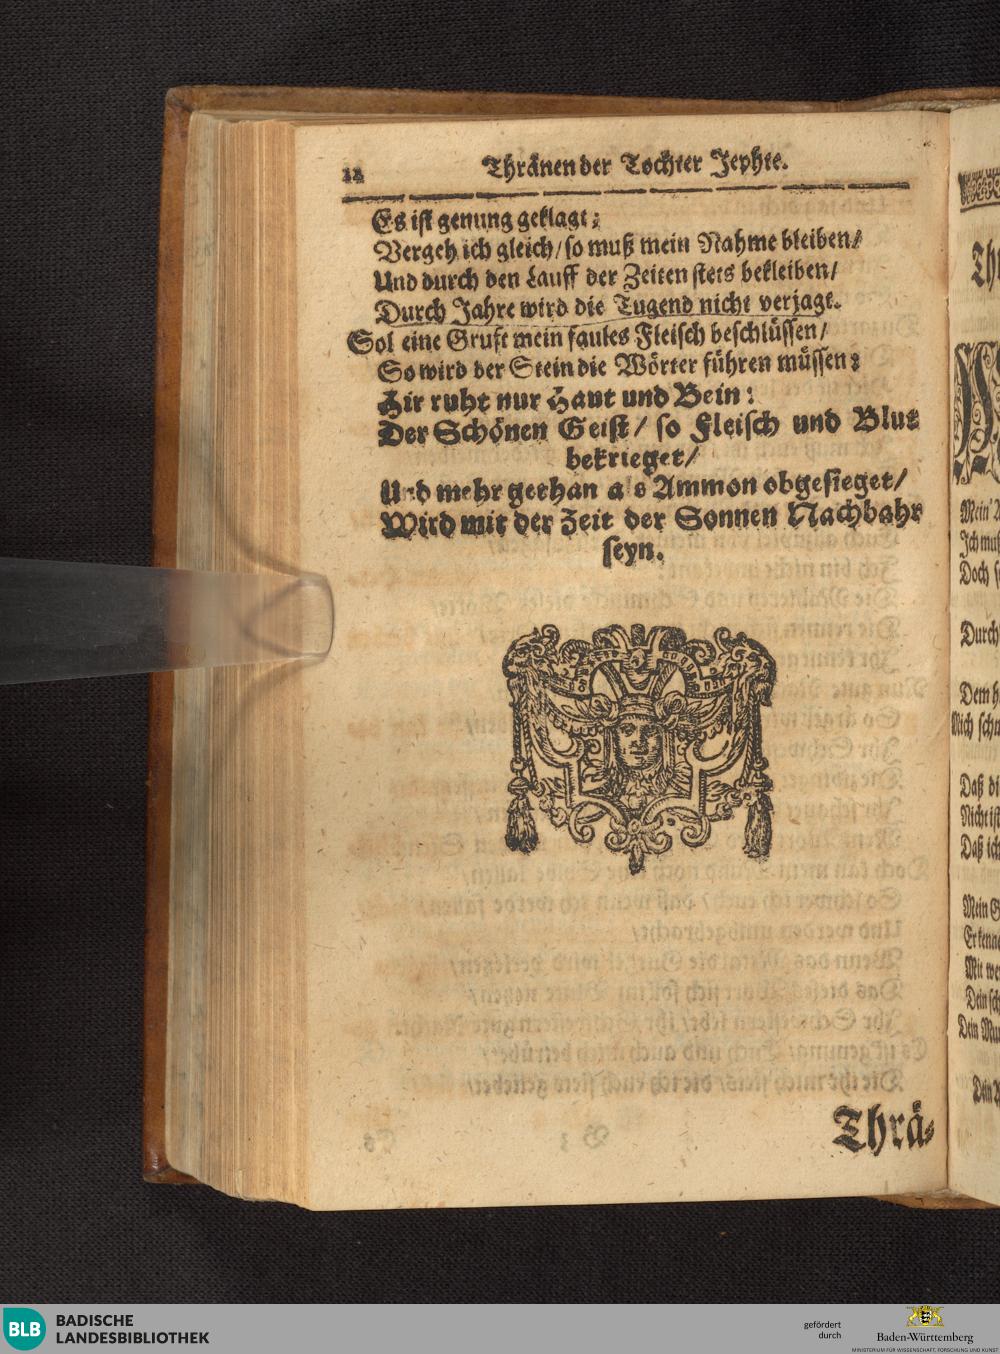 12 Thränen der Tochter Jephte.
Es ist genung geklagt;
Vergeh ich gleich/ so muß mein Nahme bleiben/
Und durch den Lauff der Zeiten stets bekleiben/
Durch Jahre wird die Tugend nicht verjagt.
Sol eine Gruft mein faules Fleisch beschlüssen/
So wird der Stein die Wörter führen müssen:
Hir ruht nur Haut und Bein:
Der Schönen Geist/ so Fleisch und Blut
bekrieget/
Und mehr gethan als Ammon obgesieget/
Wird mit der Zeit der Sonnen Nachbahr
seyn.
Thrä-
Th
Mein
Ich muß
Doch
Durch
Dem
Daß
Nicht ist
Daß ich
Mein
Mit
Dein
Dein
BLB BADISCHE
LANDESBIBLIOTHEK
gefördert
durch
Baden-Württemberg
MINISTERIUM FÜR WISSENSCHAFT, FORSCHUNG UND KUNST